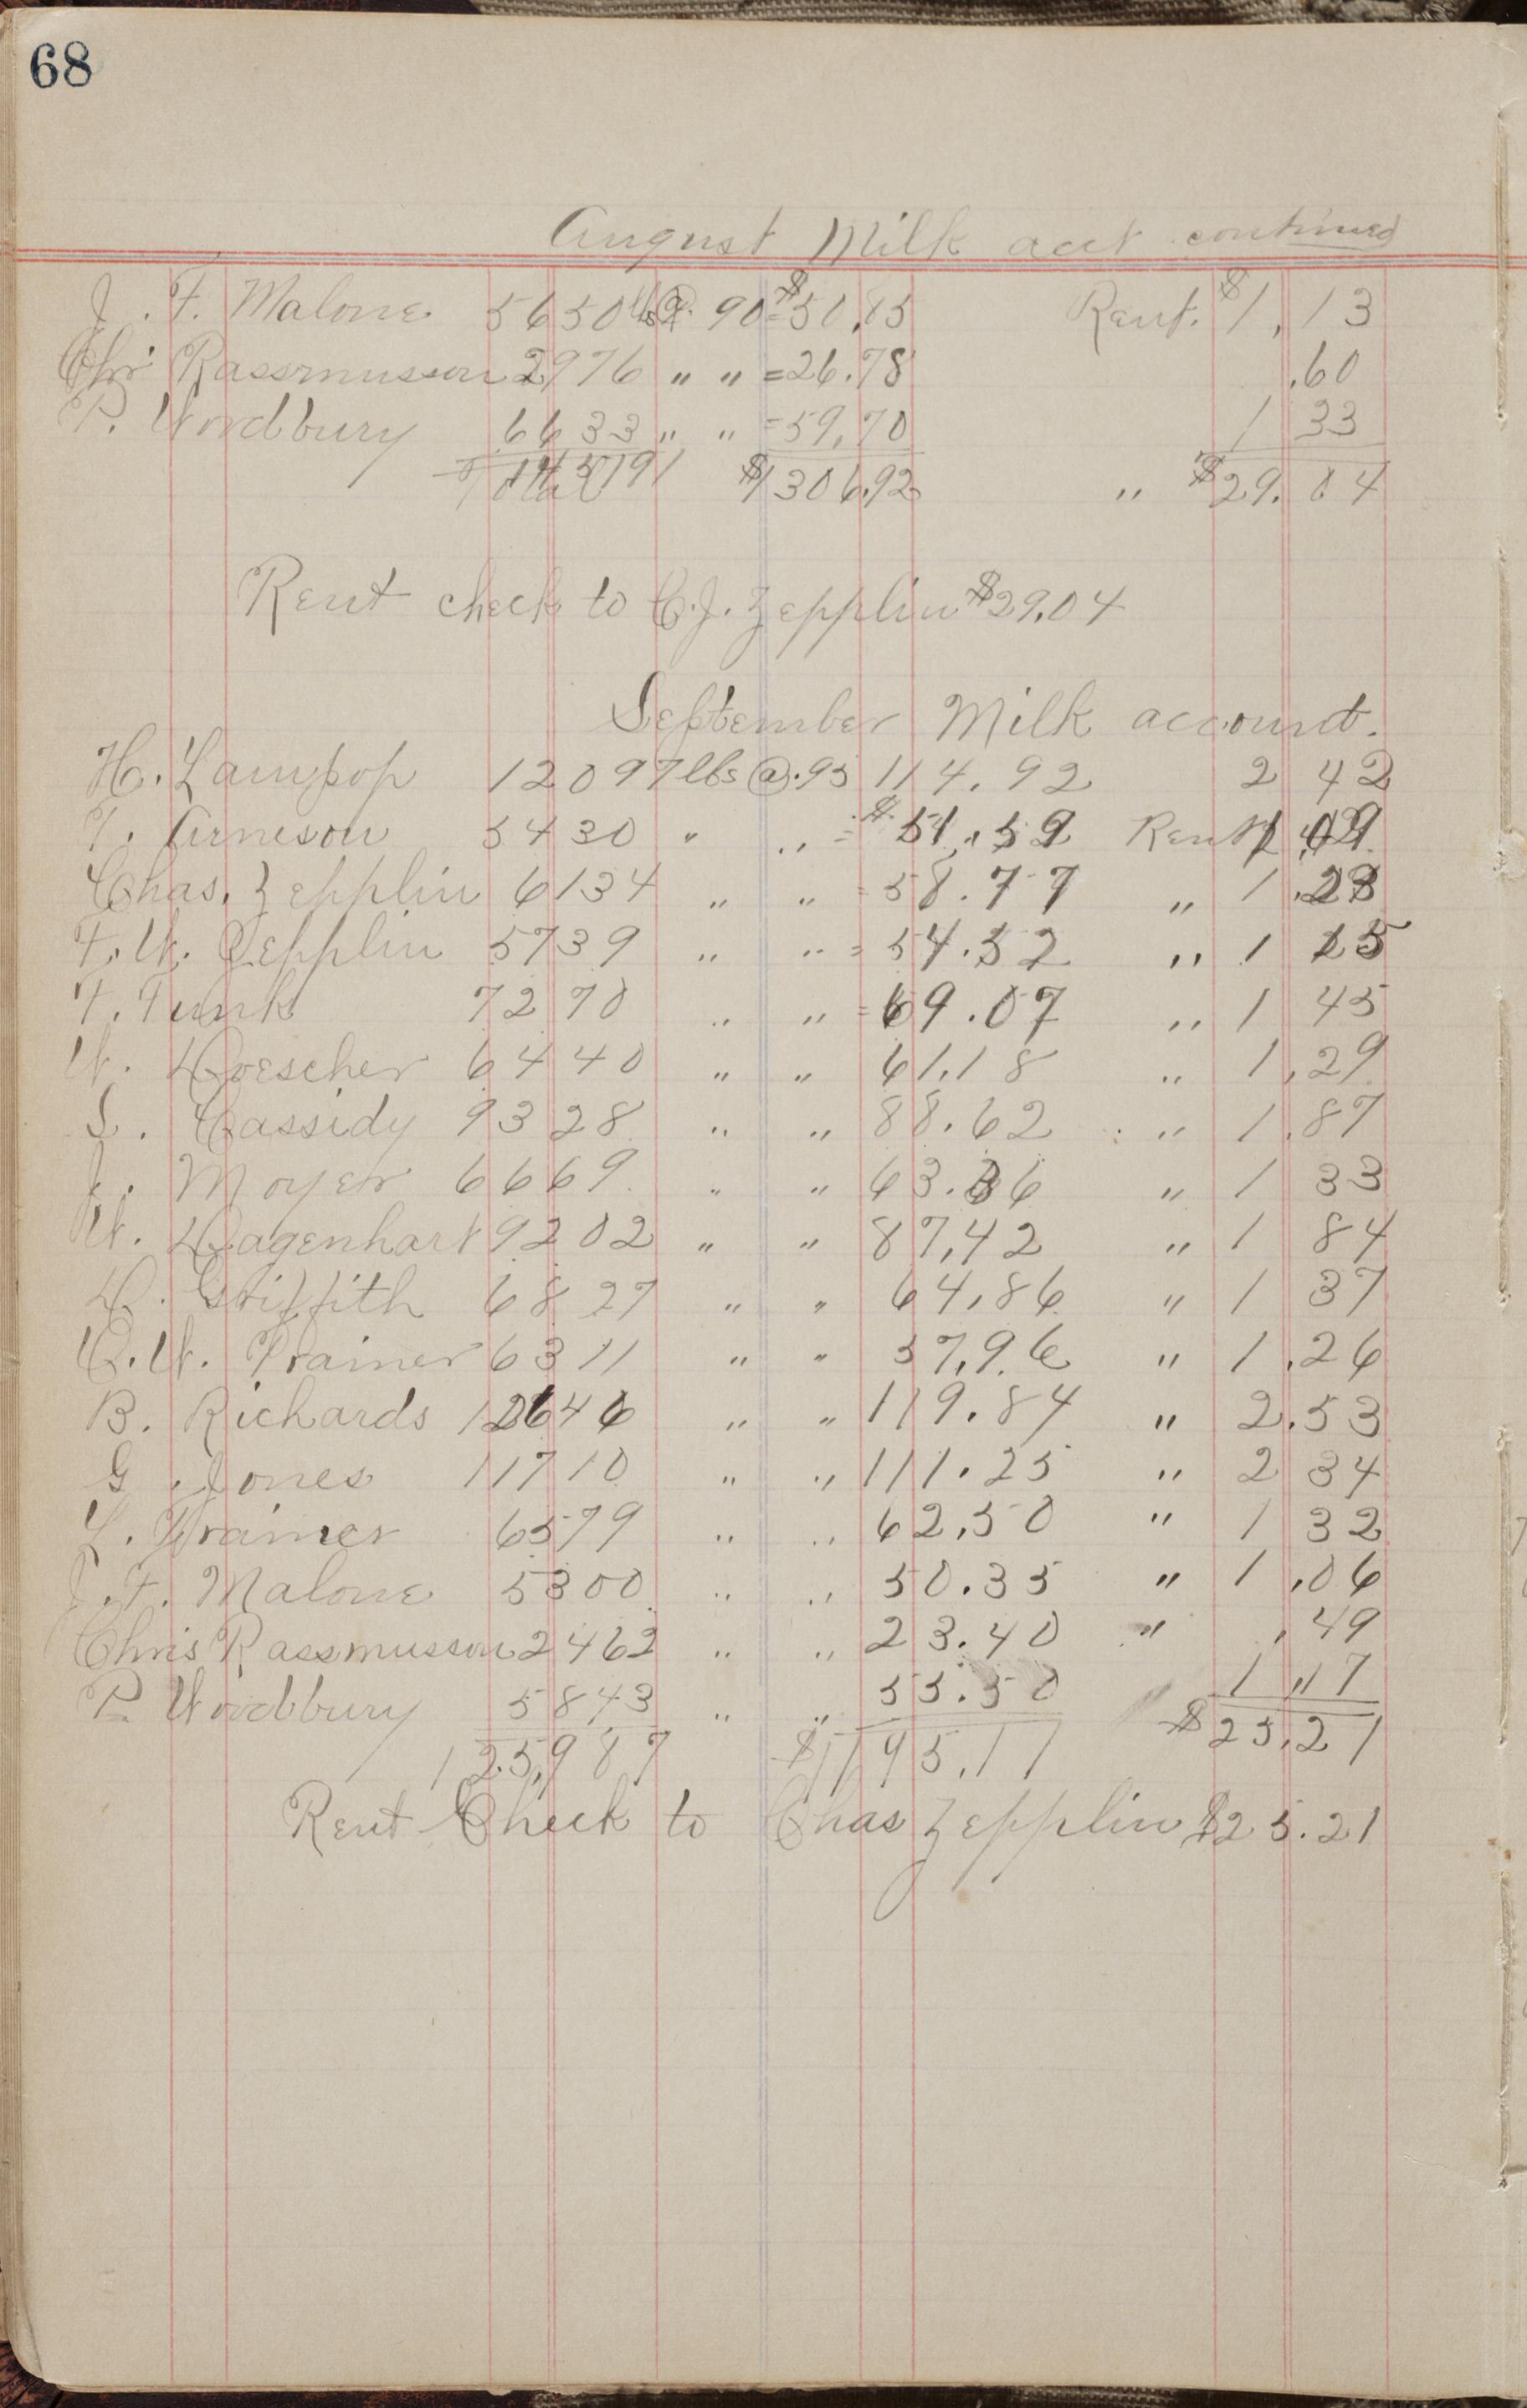 68
August Milk acct continued
J. F. Malone 5650 lbs @ .90 = $50.85 Rent. $1.13
Chr Rassmusson 2976 " " = 26.78 .60
P. Woodbury 6633 " " = 59.70 1 33
Total 145191 $1306.92 " $29.04
Rent check to C.J. Zepplin $29.04
September Milk account.
H. Lampop 12097 lbs @ .95 114.92 2 42
T. Arneson 5430 " " = $51.59 Rent 1.09
Chas. Zepplin 6134 " " = 58.77 " 1.23
F. W. Zepplin 5739 " " = 54.52 " 1 15
F. Funk 7270 " " = 69.07 " 1 45
W. Doescher 6440 " " 61.18 " 1.29
L. Cassidy 9328 " " 88.62 " 1.87
J. Moyer 6669 " " 63.36 " 1 33
W. Dagenhart 9202 " " 87,42 " 1 84
D. Griffith 6827 " " 64.86 " 1 37
C. W. Trainer 6311 " " 57,96 " 1.26
B. Richards 12646 " " 119.84 " 2.53
G. Jones 11710 " " 111.25 " 2 34
L. Trainer 6579 " " 62.50 " 1 32
J. F. Malone 5300 " " 50.35 " 1.06
Chris Rassmusson 2462 " " 23.40 " .49
P. Woodbury 5843 " " 55.50 1 17
125,987 $1195.17 $25.21
Rent Check to Chas Zepplin $25.21